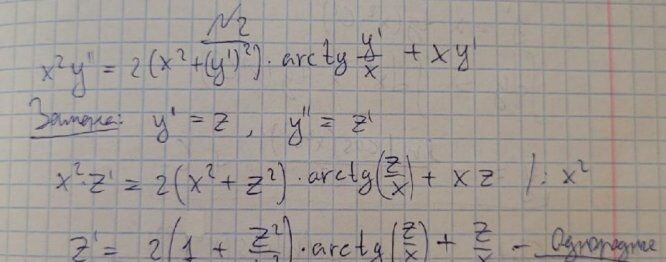 №2
x²y'' = 2(x²+(y')²)·arctg y'/x + xy'
Замена: y' = z, y'' = z'
x²·z' = 2(x²+z²)·arctg(z/x) + xz /: x²
z' = 2(1 + z²/x²)·arctg(z/x) + z/x - Однородное